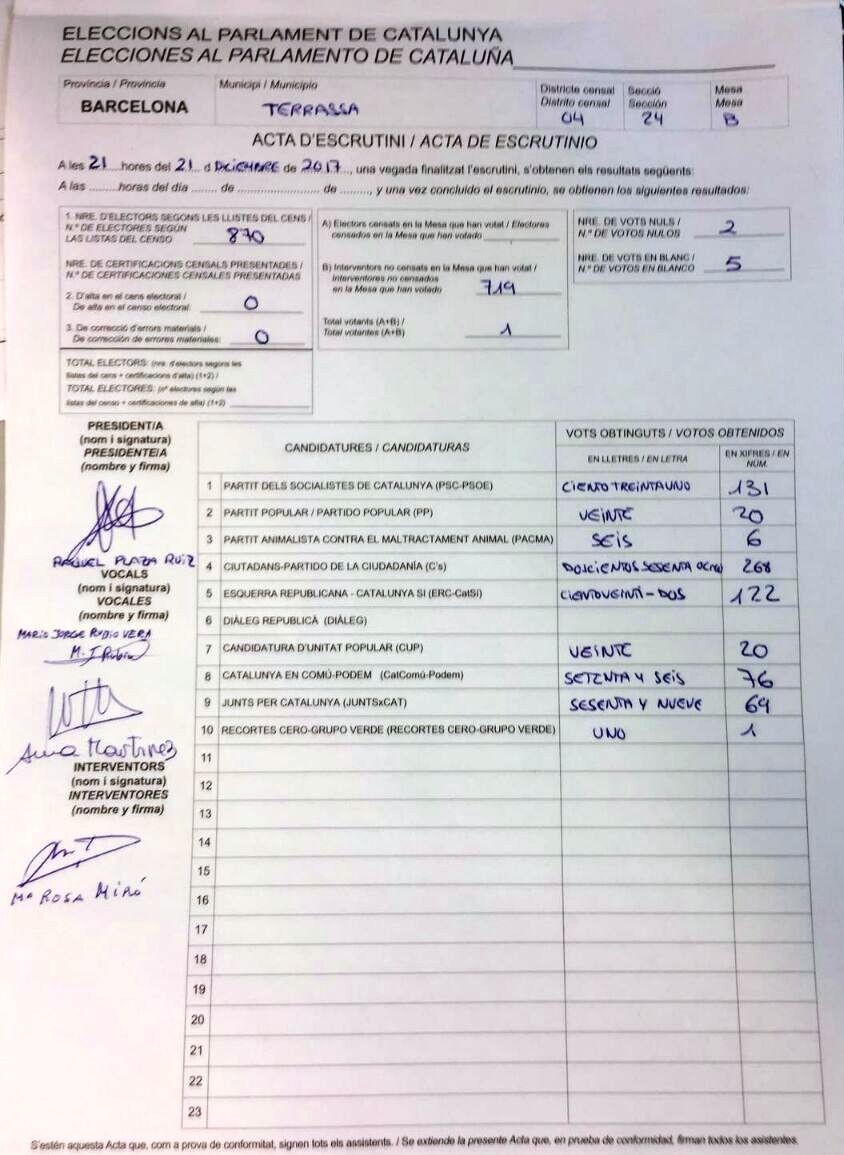 ELECCIONS AL PARLAMENT DE CATALUNYA
ELECCIONES AL PARLAMENTO DE CATALUÑA
Provincia / Provincia
BARCELONA
Municipi / Municipio
TERRASSA
Districte censal
Distrito censal
04
Secció
Sección
24
Mesa
Mesa
B
ACTA D'ESCRUTINI / ACTA DE ESCRUTINIO
A les 21 hores del 21 d DICIEMBRE de 2017, una vegada finalitzat l'escrutini, s'obtenen els resultats següents:
A las ......... horas del día ....... de ........................ de ........., y una vez concluido el escrutinio, se obtienen los siguientes resultados:
1. NRE. D'ELECTORS SEGONS LES LLISTES DEL CENS /
N.º DE ELECTORES SEGÚN
LAS LISTAS DEL CENSO 870
NRE. DE CERTIFICACIONS CENSALS PRESENTADES /
N.º DE CERTIFICACIONES CENSALES PRESENTADAS
2. D'alta en el cens electoral /
De alta en el censo electoral: 0
3. De correcció d'errors materials /
De corrección de errores materiales: 0
TOTAL ELECTORS: (nre. d'electors segons les
llistes del cens + certificacions d'alta) (1+2) /
TOTAL ELECTORES: (nº electores según las
listas del censo + certificaciones de alta) (1+2)
A) Electors censats en la Mesa que han votat / Electores
censados en la Mesa que han votado
B) Interventors no censats en la Mesa que han votat /
Interventores no censados
en la Mesa que han votado 719
Total votants (A+B) /
Total votantes (A+B) 1
NRE. DE VOTS NULS /
N.º DE VOTOS NULOS 2
NRE. DE VOTS EN BLANC /
N.º DE VOTOS EN BLANCO 5
PRESIDENT/A
(nom i signatura)
PRESIDENTE/A
(nombre y firma)
RAQUEL PLAZA RUIZ
VOCALS
(nom i signatura)
VOCALES
(nombre y firma)
MARIO JORGE RUBIO VERA
M. J Rubio
Anna Martinez
INTERVENTORS
(nom i signatura)
INTERVENTORES
(nombre y firma)
Mª ROSA MIRÓ
CANDIDATURES / CANDIDATURAS
VOTS OBTINGUTS / VOTOS OBTENIDOS
EN LLETRES / EN LETRA
EN XIFRES / EN
NÚM.
1 PARTIT DELS SOCIALISTES DE CATALUNYA (PSC-PSOE) CIENTO TREINTAUNO 131
2 PARTIT POPULAR / PARTIDO POPULAR (PP) VEINTE 20
3 PARTIT ANIMALISTA CONTRA EL MALTRACTAMENT ANIMAL (PACMA) SEIS 6
4 CIUTADANS-PARTIDO DE LA CIUDADANÍA (C's) DOSCIENTOS SESENTA OCHO 268
5 ESQUERRA REPUBLICANA - CATALUNYA SI (ERC-CatSí) CIENTOVEINTI-DOS 122
6 DIÀLEG REPUBLICÀ (DIÀLEG)
7 CANDIDATURA D'UNITAT POPULAR (CUP) VEINTE 20
8 CATALUNYA EN COMÚ-PODEM (CatComú-Podem) SETENTA Y SEIS 76
9 JUNTS PER CATALUNYA (JUNTSxCAT) SESENTA Y NUEVE 69
10 RECORTES CERO-GRUPO VERDE (RECORTES CERO-GRUPO VERDE) UNO 1
11
12
13
14
15
16
17
18
19
20
21
22
23
S'estén aquesta Acta que, com a prova de conformitat, signen tots els assistents. / Se extiende la presente Acta que, en prueba de conformidad, firman todos los asistentes.